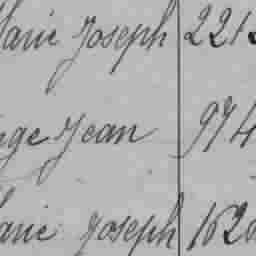 Marie Joseph 221
Jean 974
Marie Joseph 162